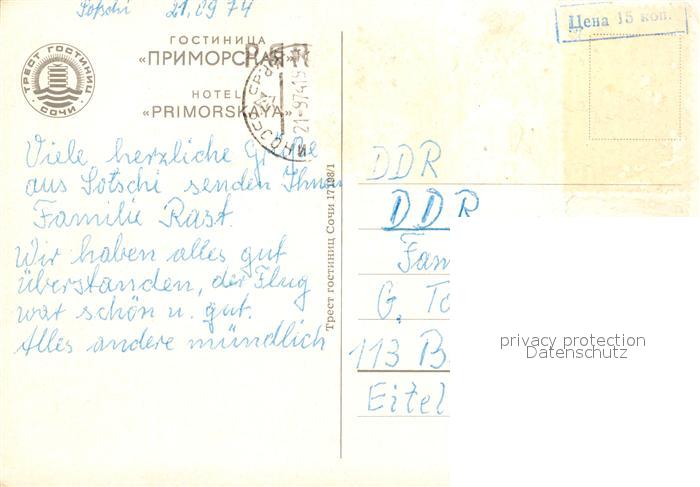 Sotschi 21.09.74
Цена 15 коп.
ГОСТИНИЦА
«ПРИМОРСКАЯ»
HOTEL
«PRIMORSKAYA»
ТРЕСТ ГОСТИНИЦ
СОЧИ
21-97419
Viele herzliche Grüße
aus Sotschi senden Ihnen
Familie Rast.
Wir haben alles gut
überstanden, der Flug
war schön u. gut.
Alles andere mündlich
Трест гостиниц Сочи 17198/1
DDR
DDR
Fam
G. To
113 B.
Eitel
privacy protection
Datenschutz